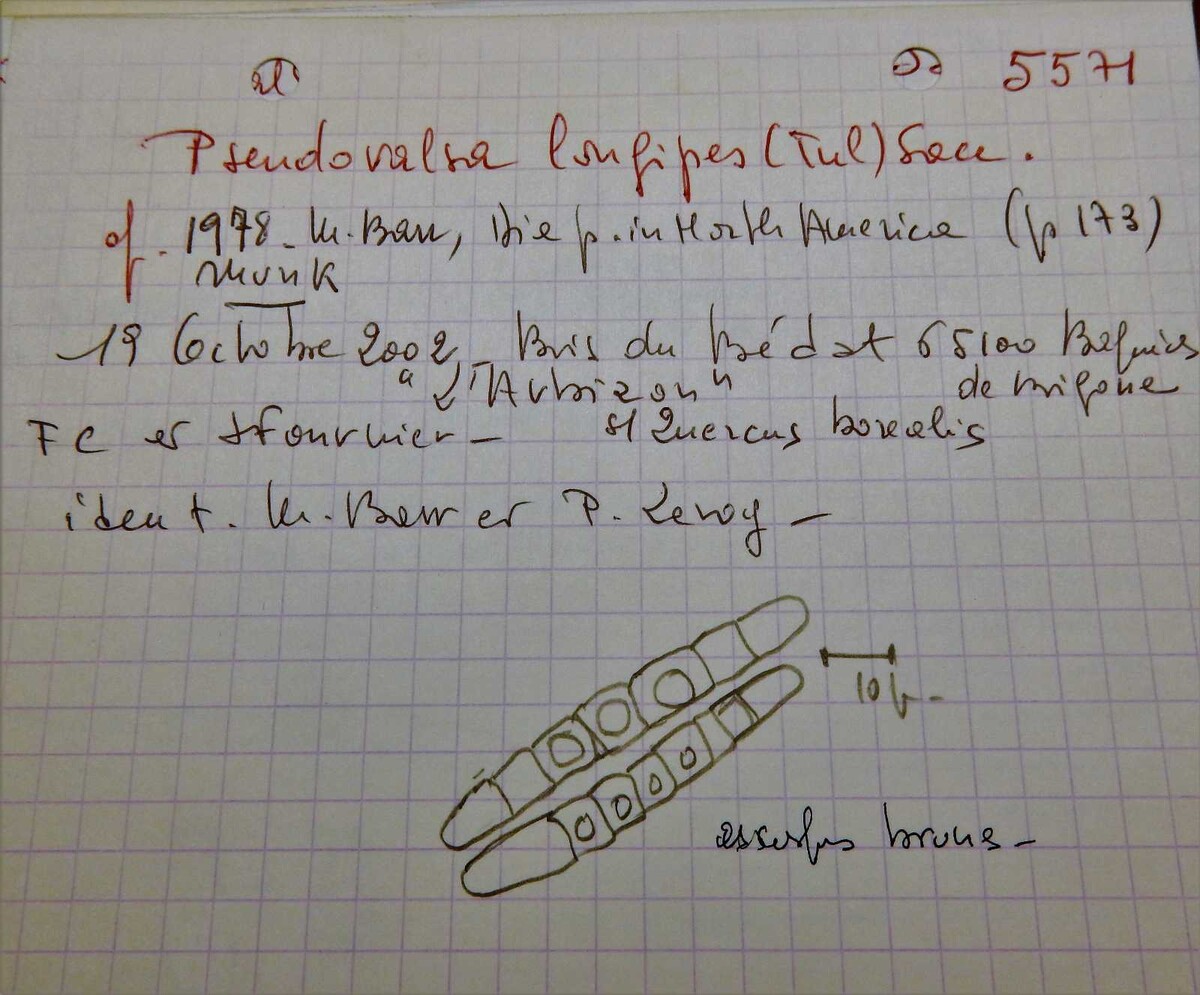 5571
Pseudovalsa longipes (Tul) Sacc.
cf. 1978 - M. Barr, Diap. in North America (p 173)
Munk
19 Octobre 2002 - Bois du Bédat 65100 Bagnères
" L'Arbizon " de Bigorre
FC et J Fournier - s/ Quercus borealis
ident. M. Barr et P. Leroy -
10 µ -
ascospores brunes -